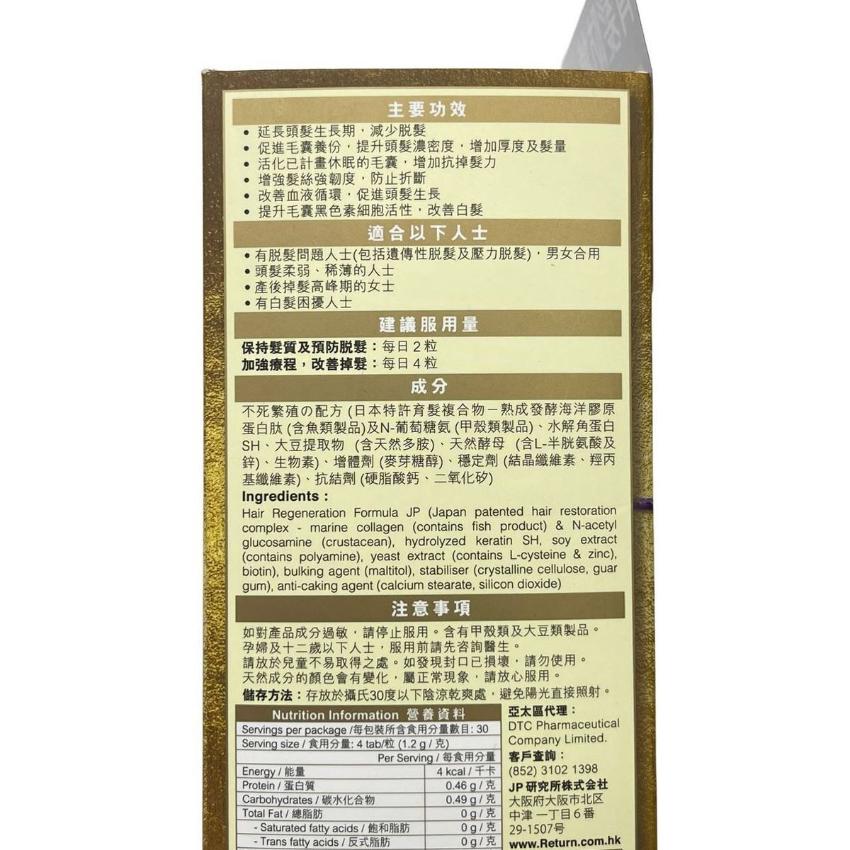 主要功效
• 延長頭髮生長期，減少脱髮
• 促進毛囊養份，提升頭髮濃密度，增加厚度及髮量
• 活化已計畫休眠的毛囊，增加抗掉髮力
• 增強髮絲強韌度，防止折斷
• 改善血液循環，促進頭髮生長
• 提升毛囊黑色素細胞活性，改善白髮
適合以下人士
• 有脱髮問題人士(包括遺傳性脱髮及壓力脱髮)，男女合用
• 頭髮柔弱、稀薄的人士
• 產後掉髮高峰期的女士
• 有白髮困擾人士
建議服用量
保持髮質及預防脱髮：每日2粒
加強療程，改善掉髮：每日4粒
成分
不死繁殖の配方 (日本特許育髮複合物－熟成發酵海洋膠原
蛋白肽 (含魚類製品)及N-葡萄糖氨 (甲殼類製品)、水解角蛋白
SH、大豆提取物 (含天然多胺)、天然酵母 (含L-半胱氨酸及
鋅)、生物素)、增體劑 (麥芽糖醇)、穩定劑 (結晶纖維素、羥丙
基纖維素)、抗結劑 (硬脂酸鈣、二氧化矽)
Ingredients :
Hair Regeneration Formula JP (Japan patented hair restoration
complex - marine collagen (contains fish product) & N-acetyl
glucosamine (crustacean), hydrolyzed keratin SH, soy extract
(contains polyamine), yeast extract (contains L-cysteine & zinc),
biotin), bulking agent (maltitol), stabiliser (crystalline cellulose, guar
gum), anti-caking agent (calcium stearate, silicon dioxide)
注意事項
如對產品成分過敏，請停止服用。含有甲殼類及大豆類製品。
孕婦及十二歲以下人士，服用前請先咨詢醫生。
請放於兒童不易取得之處。如發現封口已損壞，請勿使用。
天然成分的顏色會有變化，屬正常現象，請放心服用。
儲存方法：存放於攝氏30度以下陰涼乾爽處，避免陽光直接照射。
Nutrition Information 營養資料
Servings per package /每包裝所含食用分量數目: 30
Serving size / 食用分量: 4 tab/粒 (1.2 g / 克)
Per Serving / 每食用分量
Energy / 能量 4 kcal / 千卡
Protein / 蛋白質 0.46 g / 克
Carbohydrates / 碳水化合物 0.49 g / 克
Total Fat / 總脂肪 0 g / 克
- Saturated fatty acids / 飽和脂肪 0 g / 克
- Trans fatty acids / 反式脂肪 0 g / 克
亞太區代理：
DTC Pharmaceutical
Company Limited.
客戶查詢：
(852) 3102 1398
JP 研究所株式会社
大阪府大阪市北区
中津 一丁目6番
29-1507号
www.Return.com.hk